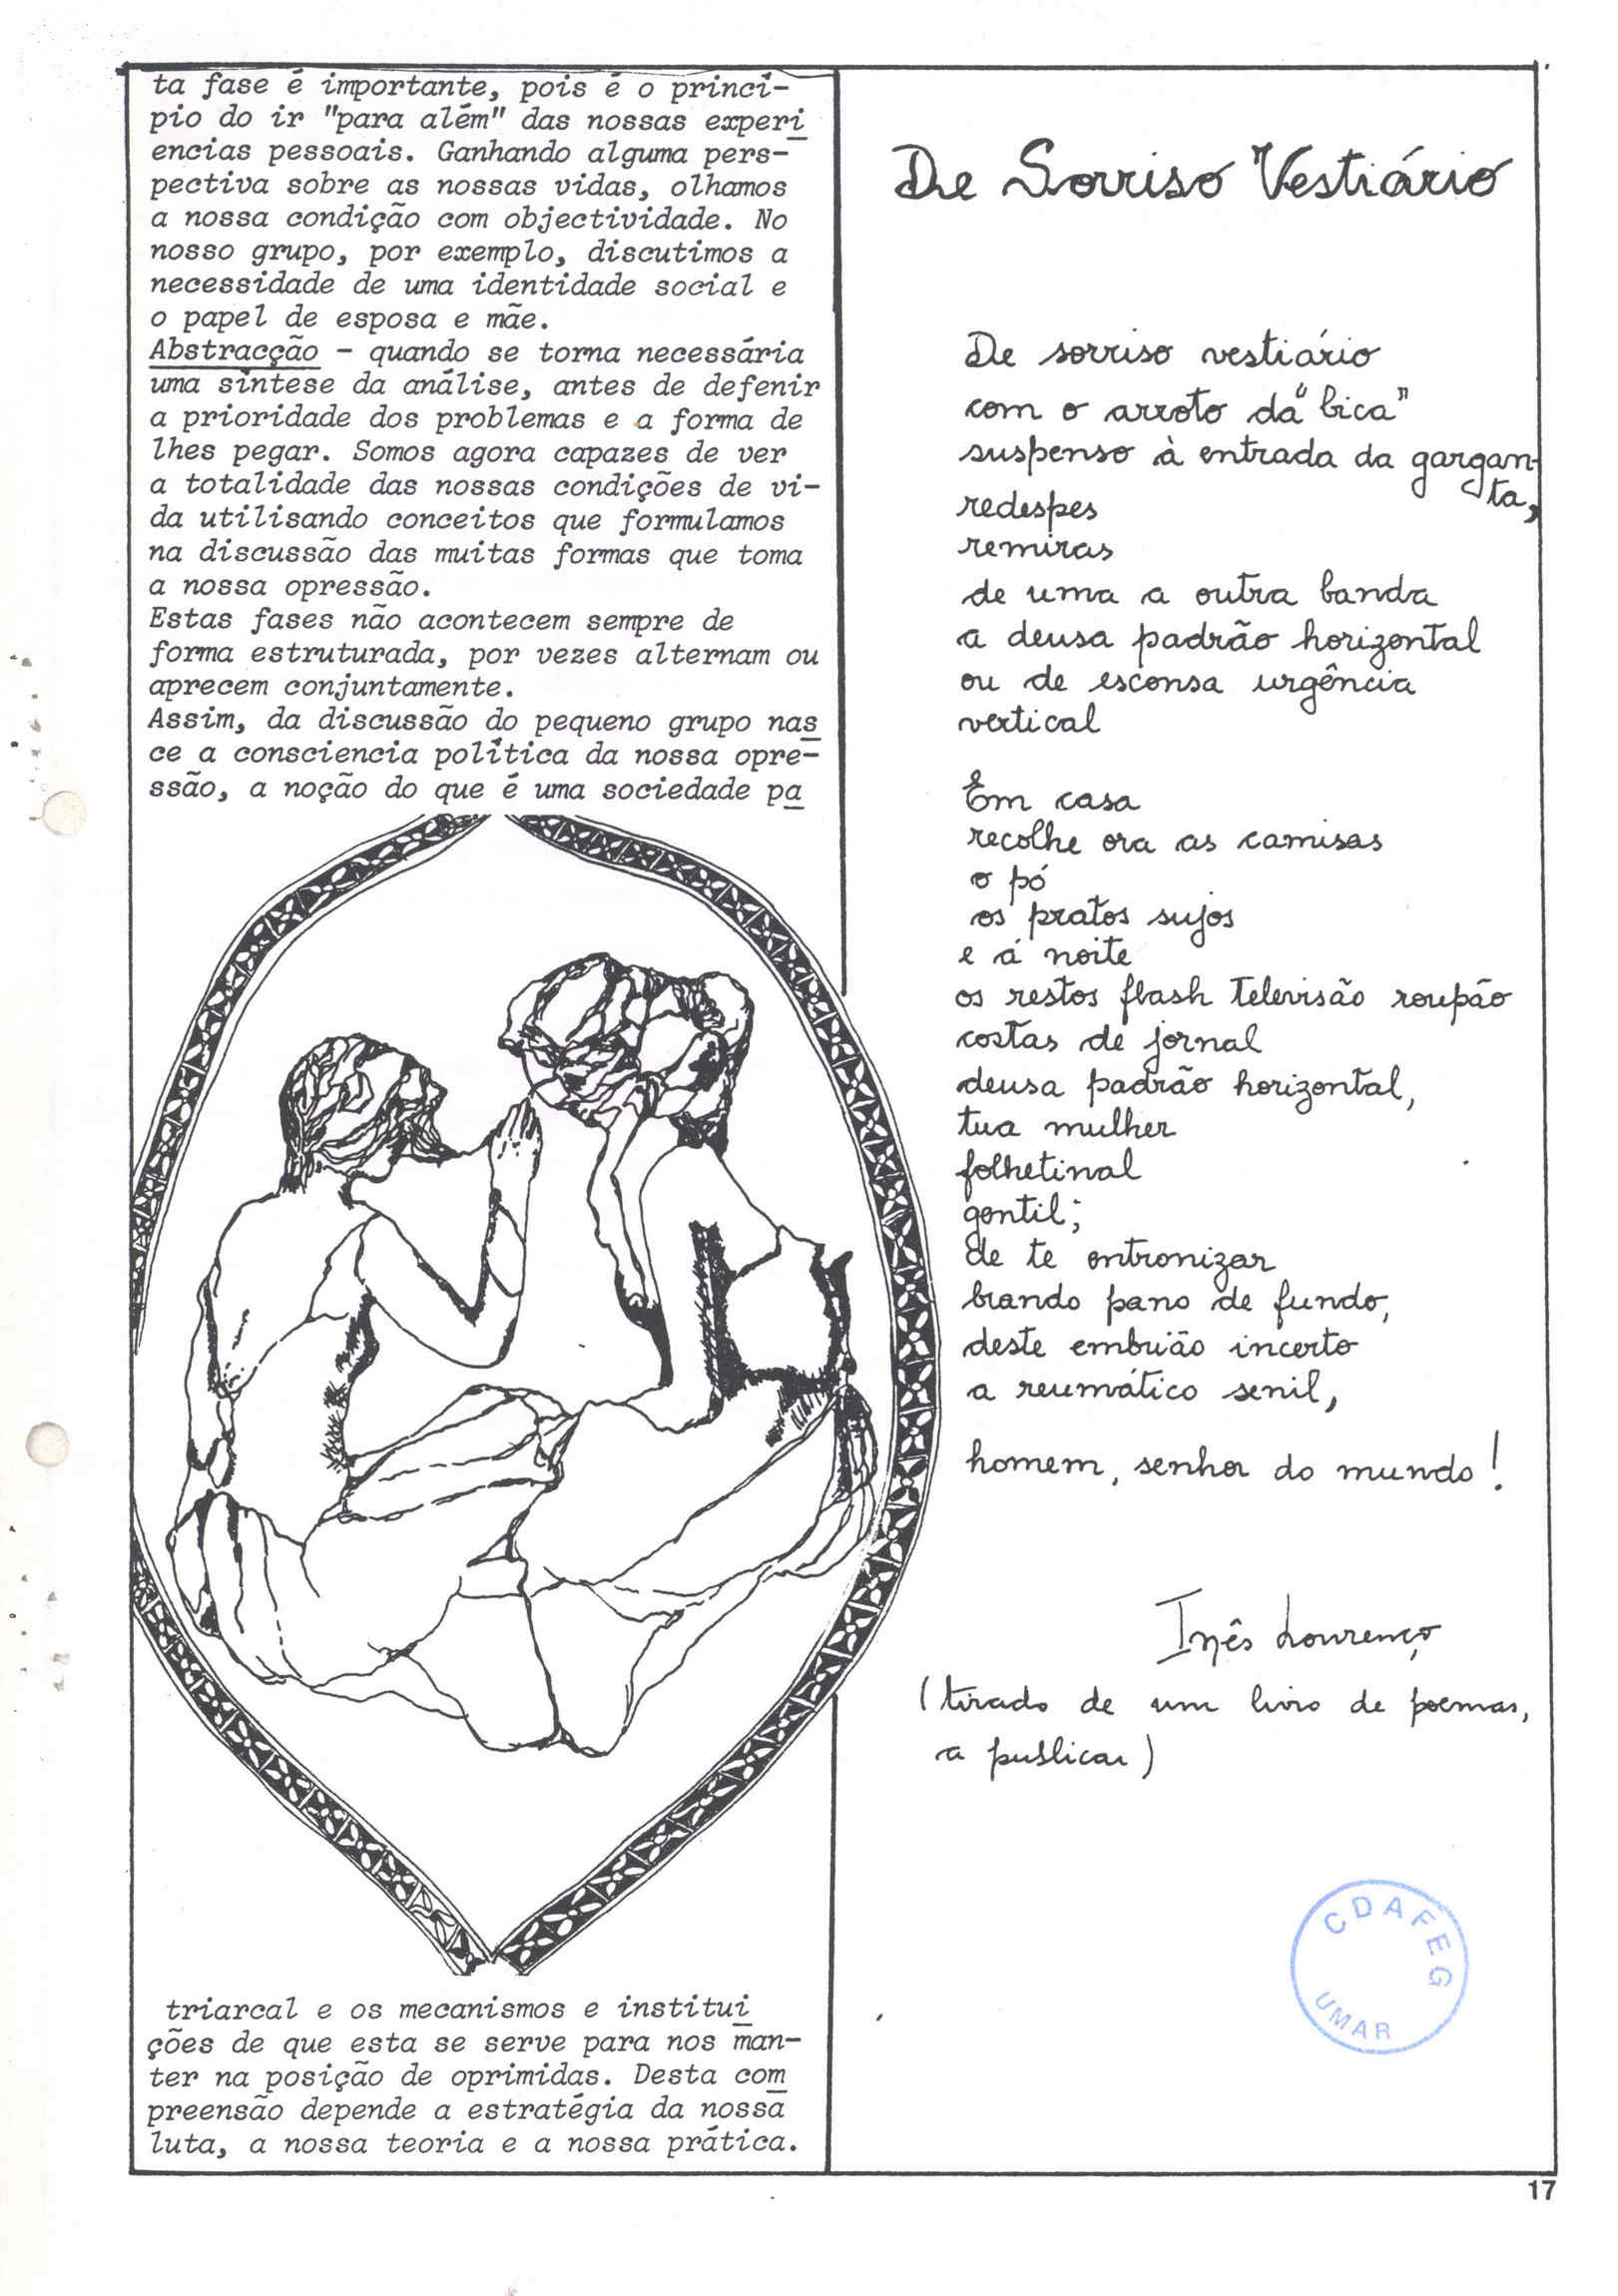 ta fase é importante, pois é o princí-
pio do ir "para além" das nossas experi
encias pessoais. Ganhando alguma pers-
pectiva sobre as nossas vidas, olhamos
a nossa condição com objectividade. No
nosso grupo, por exemplo, discutimos a
necessidade de uma identidade social e
o papel de esposa e mãe.
Abstracção - quando se torna necessária
uma síntese da análise, antes de defenir
a prioridade dos problemas e a forma de
lhes pegar. Somos agora capazes de ver
a totalidade das nossas condições de vi-
da utilisando conceitos que formulamos
na discussão das muitas formas que toma
a nossa opressão.
Estas fases não acontecem sempre de
forma estruturada, por vezes alternam ou
aprecem conjuntamente.
Assim, da discussão do pequeno grupo nas
ce a consciencia política da nossa opre-
ssão, a noção do que é uma sociedade pa
triarcal e os mecanismos e institui
ções de que esta se serve para nos man-
ter na posição de oprimidas. Desta com
preensão depende a estratégia da nossa
luta, a nossa teoria e a nossa prática.
De Sorriso Vestiário
De sorriso vestiário
com o arroto da "bica"
suspenso à entrada da gargan-
ta,
redespes
remiras
de uma a outra banda
a deusa padrão horizontal
ou de esconsa urgência
vertical
Em casa
recolhe ora as camisas
o pó
os pratos sujos
e á noite
os restos flash televisão roupão
costas de jornal
deusa padrão horizontal,
tua mulher
folhetinal
gentil;
de te entronizar
brando pano de fundo,
deste embrião incerto
a reumático senil,
homem, senhor do mundo!
Inês Lourenço
(tirado de um livro de poemas,
a publicar)
CDAFEG
UMAR
17